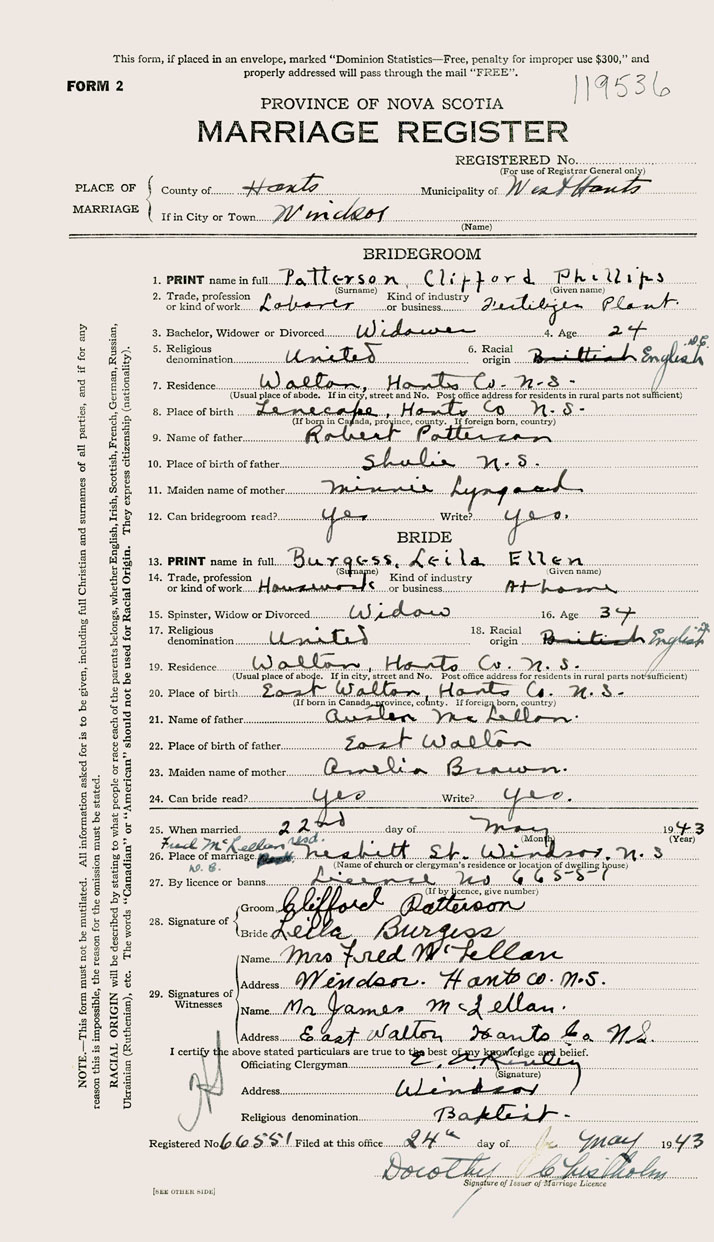 This form, if placed in an envelope, marked “Dominion Statistics—Free, penalty for improper use $300,” and
properly addressed will pass through the mail “FREE”.
FORM 2
119536
PROVINCE OF NOVA SCOTIA
MARRIAGE REGISTER
REGISTERED No.
(For use of Registrar General only)
PLACE OF MARRIAGE
County of Hants Municipality of West Hants
If in City or Town Windsor
(Name)
BRIDEGROOM
1. PRINT name in full Patterson, Clifford Phillips
(Surname) (Given name)
2. Trade, profession or kind of work Laborer Kind of industry or business Fertilizer Plant.
3. Bachelor, Widower or Divorced Widower 4. Age 24
5. Religious denomination United 6. Racial origin Brittish English D.C.
7. Residence Walton, Hants Co. N.S.
(Usual place of abode. If in city, street and No. Post office address for residents in rural parts not sufficient)
8. Place of birth Tenecape, Hants Co N.S.
(If born in Canada, province, county. If foreign born, country)
9. Name of father Robert Patterson
10. Place of birth of father Shulie N.S.
11. Maiden name of mother Minnie Lyngaad
12. Can bridegroom read? yes Write? yes.
BRIDE
13. PRINT name in full Burgess, Leila Ellen
(Surname) (Given name)
14. Trade, profession or kind of work Housework Kind of industry or business At home
15. Spinster, Widow or Divorced Widow 16. Age 34
17. Religious denomination United 18. Racial origin British English
19. Residence Walton, Hants Co. N.S.
(Usual place of abode. If in city, street and No. Post office address for residents in rural parts not sufficient)
20. Place of birth East Walton, Hants Co. N.S.
(If born in Canada, province, county. If foreign born, country)
21. Name of father Austen McLellan.
22. Place of birth of father East Walton
23. Maiden name of mother Amelia Brown.
24. Can bride read? yes Write? yes.
25. When married 22nd day of May 1943
(Month) (Year)
Fred McLellan resd.
26. Place of marriage Nesbitt St. Windsor, N.S
D.C.
(Name of church or clergyman's residence or location of dwelling house)
27. By licence or banns License No 66551
(If by licence, give number)
28. Signature of
Groom Clifford Patterson
Bride Leila Burgess
29. Signatures of Witnesses
Name Mrs Fred McLellan
Address Windsor. Hants Co. N.S.
Name Mr James McLellan.
Address East Walton Hants Co N.S.
I certify the above stated particulars are true to the best of my knowledge and belief.
Officiating Clergyman E. A. Kinley
(Signature)
Address Windsor
Religious denomination Baptist.
Registered No 66551 Filed at this office 24th day of May 1943
Dorothy Chisholm
Signature of Issuer of Marriage Licence
[SEE OTHER SIDE]
NOTE.—This form must not be mutilated. All information asked for is to be given, including full Christian and surnames of all parties, and if for any
reason this is impossible, the reason for the omission must be stated.
RACIAL ORIGIN will be described by stating to what people or race each of the parents belongs, whether English, Irish, Scottish, French, German, Russian,
Ukrainian (Ruthenian), etc. The words “Canadian” or “American” should not be used for Racial Origin. They express citizenship (nationality).